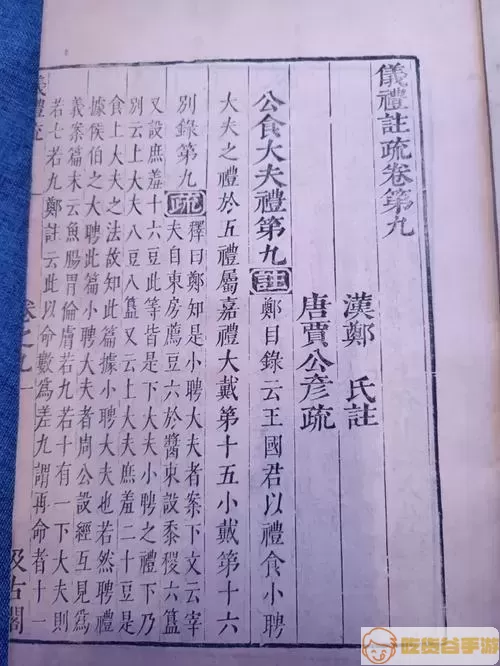 儀禮註疏卷第九
漢鄭 氏註
唐賈公彥疏
公食大夫禮第九 註 鄭目錄云王國君以禮食小聘
大夫之禮於五禮屬嘉禮大戴第十五小戴第十六
別錄第九 疏 釋曰鄭知是小聘大夫者案下文云宰
夫自東房薦豆六於醬東設黍稷六簋
又設庶羞十六豆此等皆是下大夫小聘之禮下乃
別云上大夫八豆八簋又云上大夫庶羞二十豆是
食上大夫之法故知此篇據小聘大夫也若然聘禮
據侯伯之大聘此篇小聘大夫者周公設經互見爲
義案篇末云魚腸胃倫膚若九若十有一下大夫則
若七若九鄭註云此以命數爲差九謂再命者十一
儀禮疏 卷之九 一 汲古閣
吃货谷手游